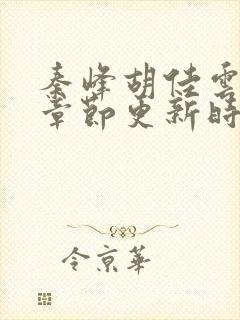 秦峰胡佳雲
章節更新時
令京華